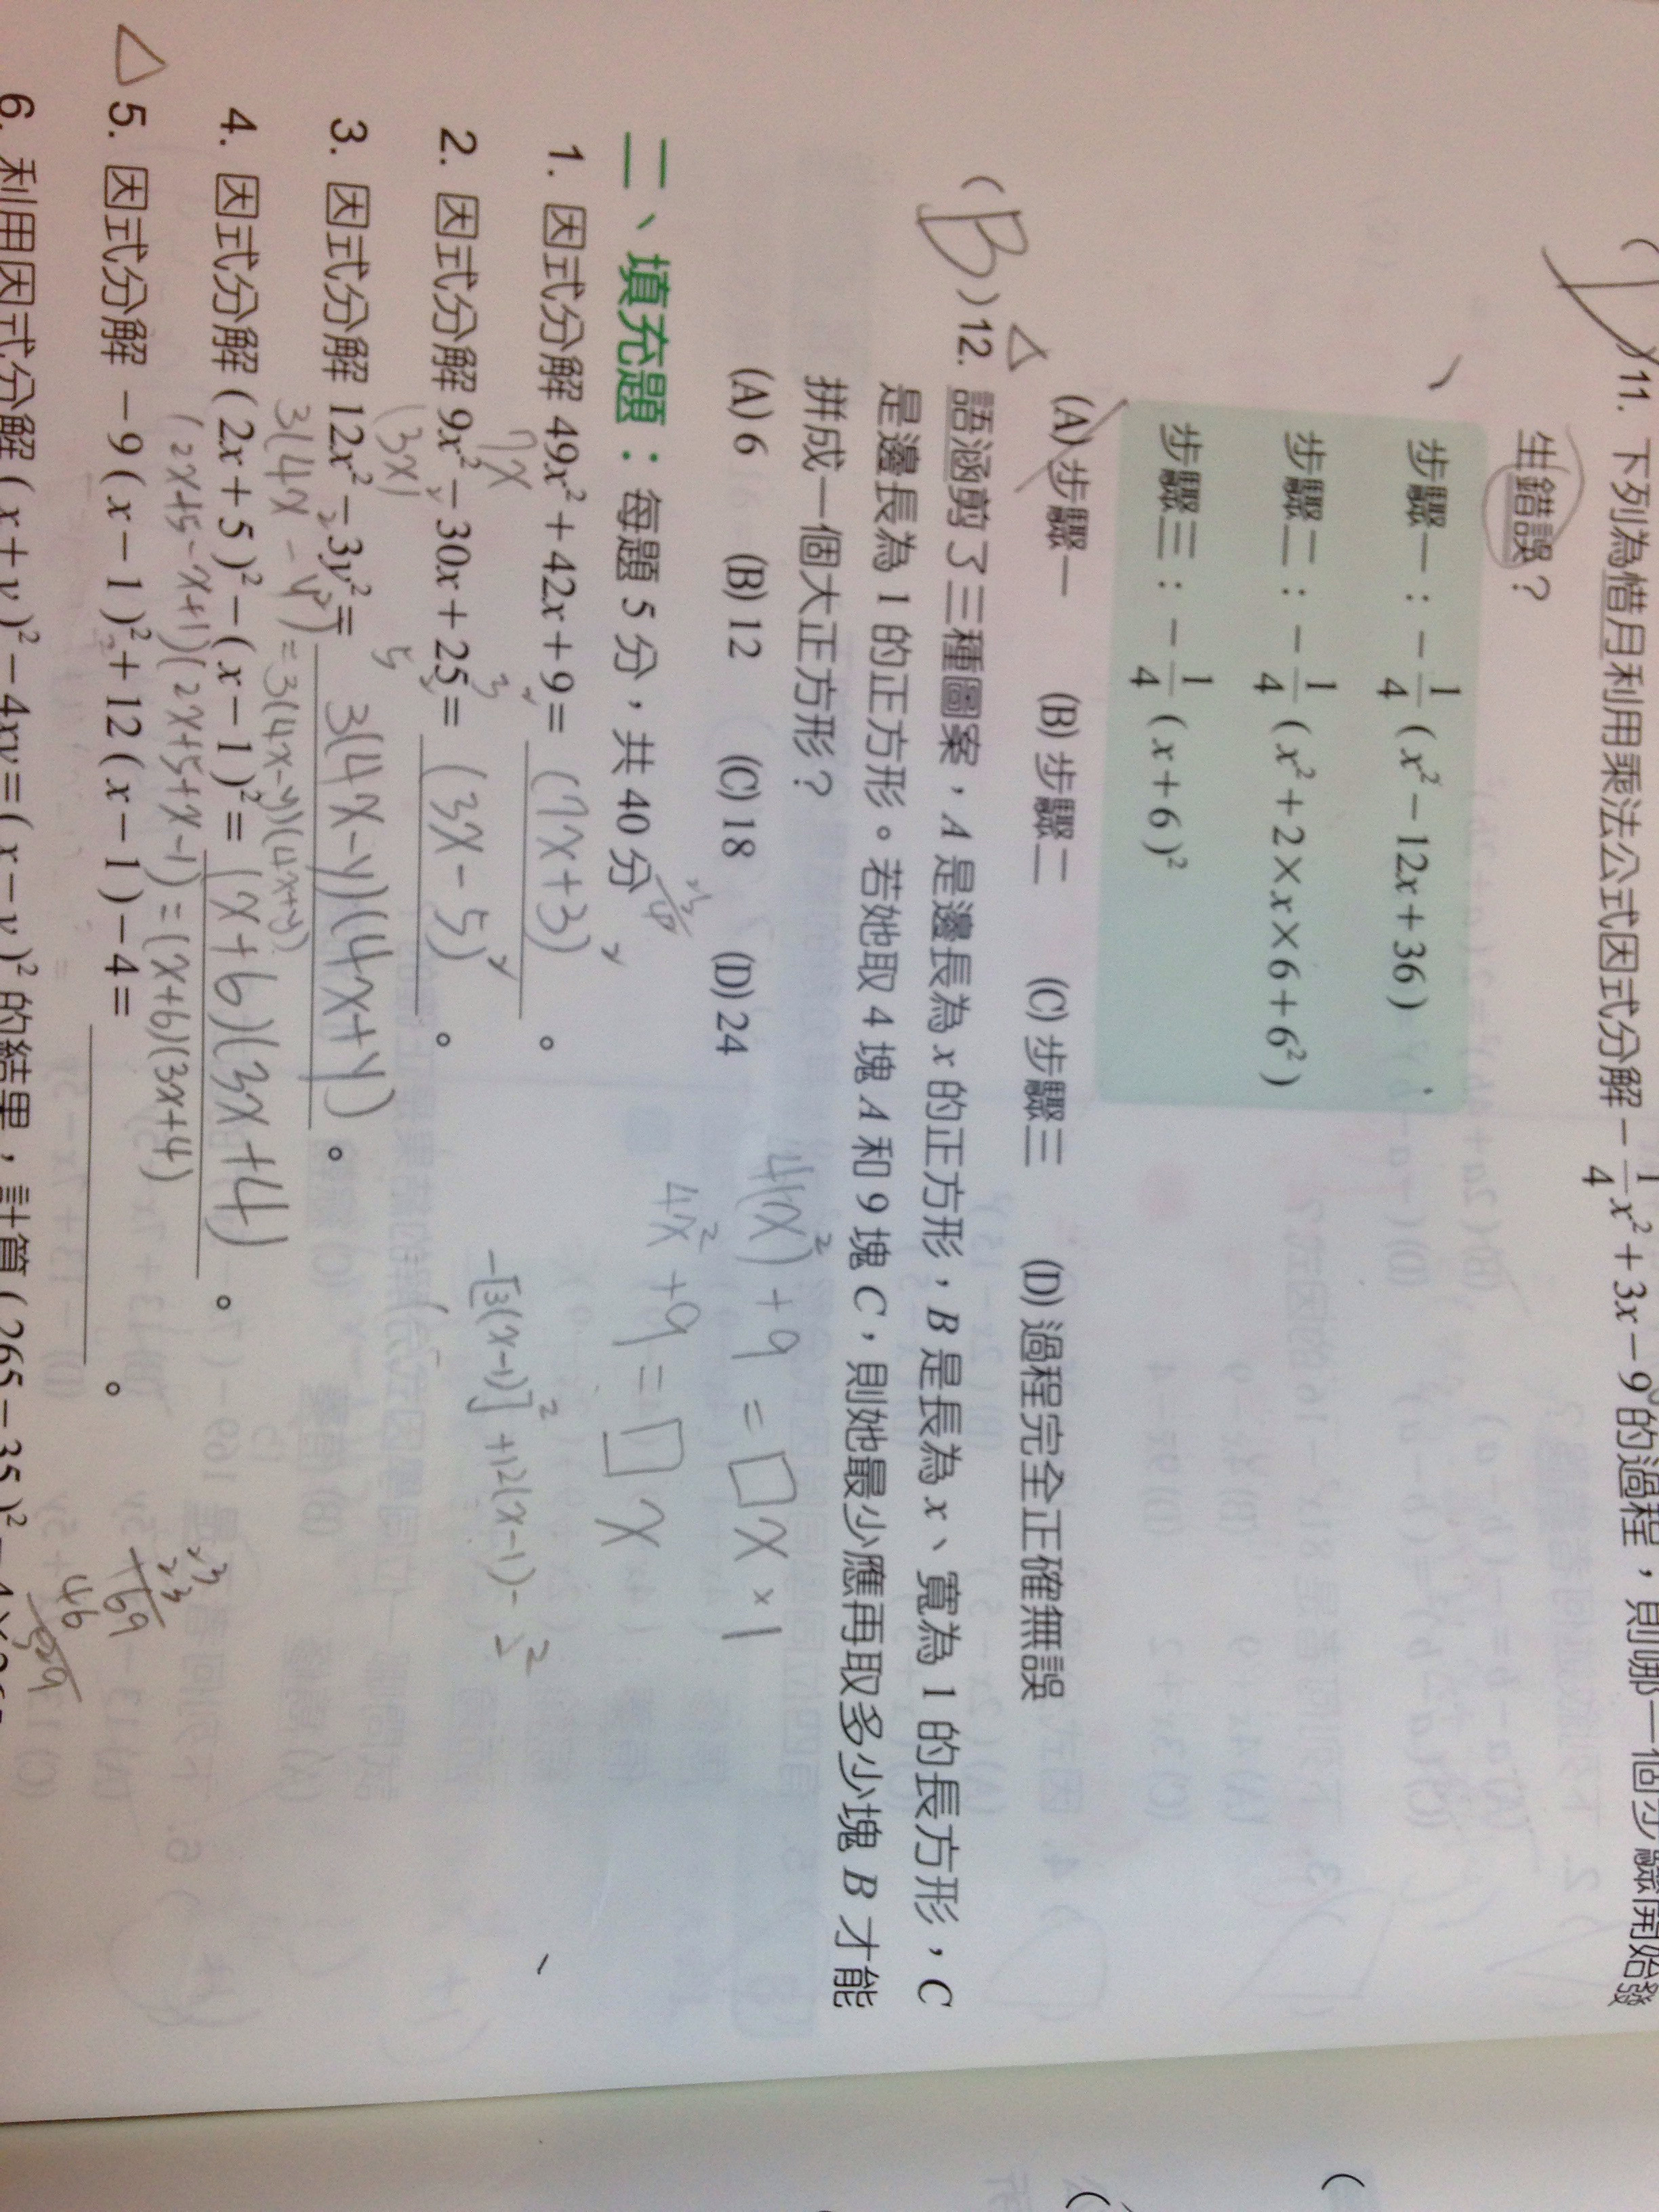 11. 下列為惜月利用乘法公式因式分解 -1/4x² + 3x - 9 的過程，則哪一個步驟開始發
生錯誤？
步驟一：-1/4 ( x² - 12x + 36 )
步驟二：-1/4 ( x² + 2 × x × 6 + 6² )
步驟三：-1/4 ( x + 6 )²
(A) 步驟一 (B) 步驟二 (C) 步驟三 (D) 過程完全正確無誤
( B ) 12. 語涵剪了三種圖案，A 是邊長為 x 的正方形，B 是長為 x、寬為 1 的長方形，C
是邊長為 1 的正方形。若她取 4 塊 A 和 9 塊 C，則她最少應再取多少塊 B 才能
拼成一個大正方形？
(A) 6 (B) 12 (C) 18 (D) 24
4(x)² + 9 = □x × 1
4x² + 9 = □x
二、填充題：每題 5 分，共 40 分
1. 因式分解 49x² + 42x + 9 = (7x+3)² 。
7x 3
2. 因式分解 9x² - 30x + 25 = (3x-5)² 。
(3x) 5
-[3(x-1)]² + 12(x-1) - 2²
3. 因式分解 12x² - 3y² = 3(4x-y)(4x+y) 。
3(4x - y²) = 3(4x-y)(4x+y)
4. 因式分解 ( 2x + 5 )² - ( x - 1 )² = (x+6)(3x+4) 。
(2x+5-x+1)(2x+5+x-1) = (x+6)(3x+4)
△ 5. 因式分解 -9 ( x - 1 )² + 12 ( x - 1 ) - 4 = 。
6. 利用因式分解 ( x + y )² - 4xy = ( x - y )² 的結果，計算 ( 265 - 35 )² - 4